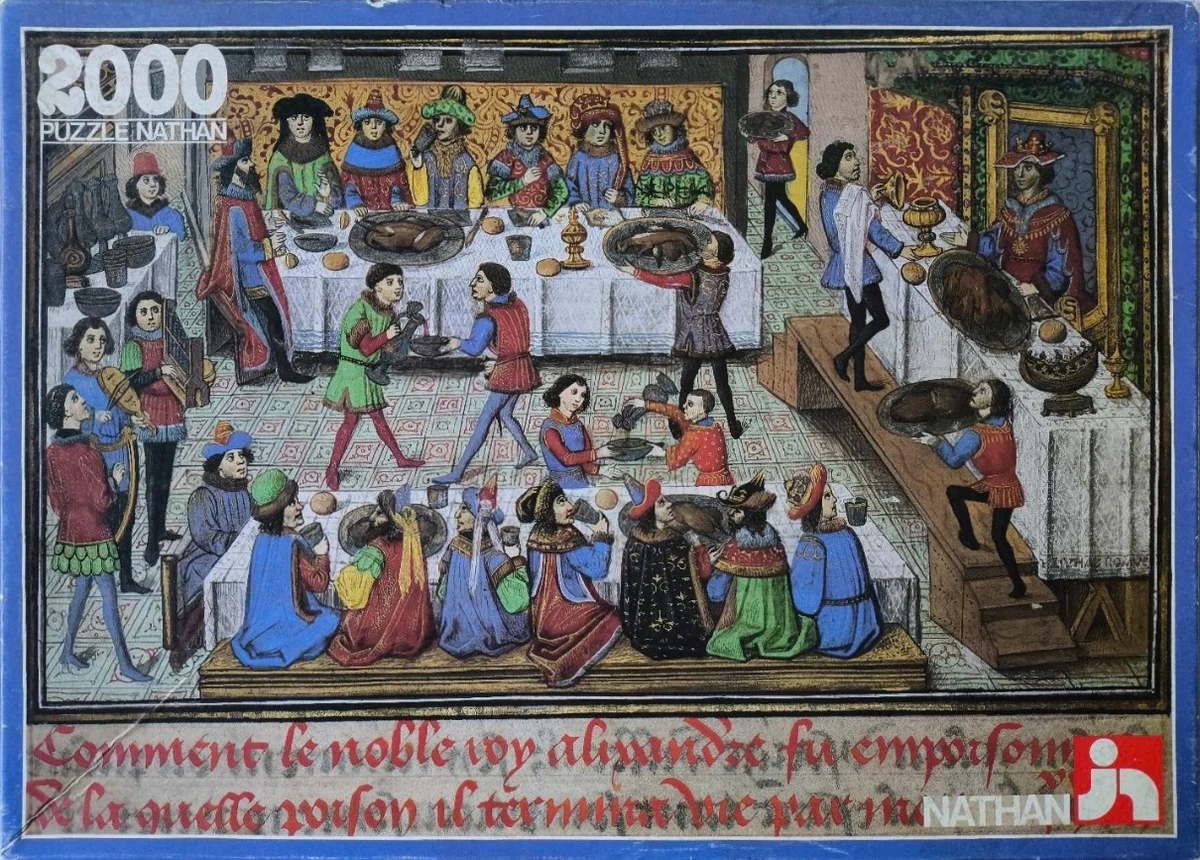 2000
PUZZLE NATHAN
Comment le noble roy alixandre fu empoisom
de la quelle poison il termina vie par mo
NATHAN
jn